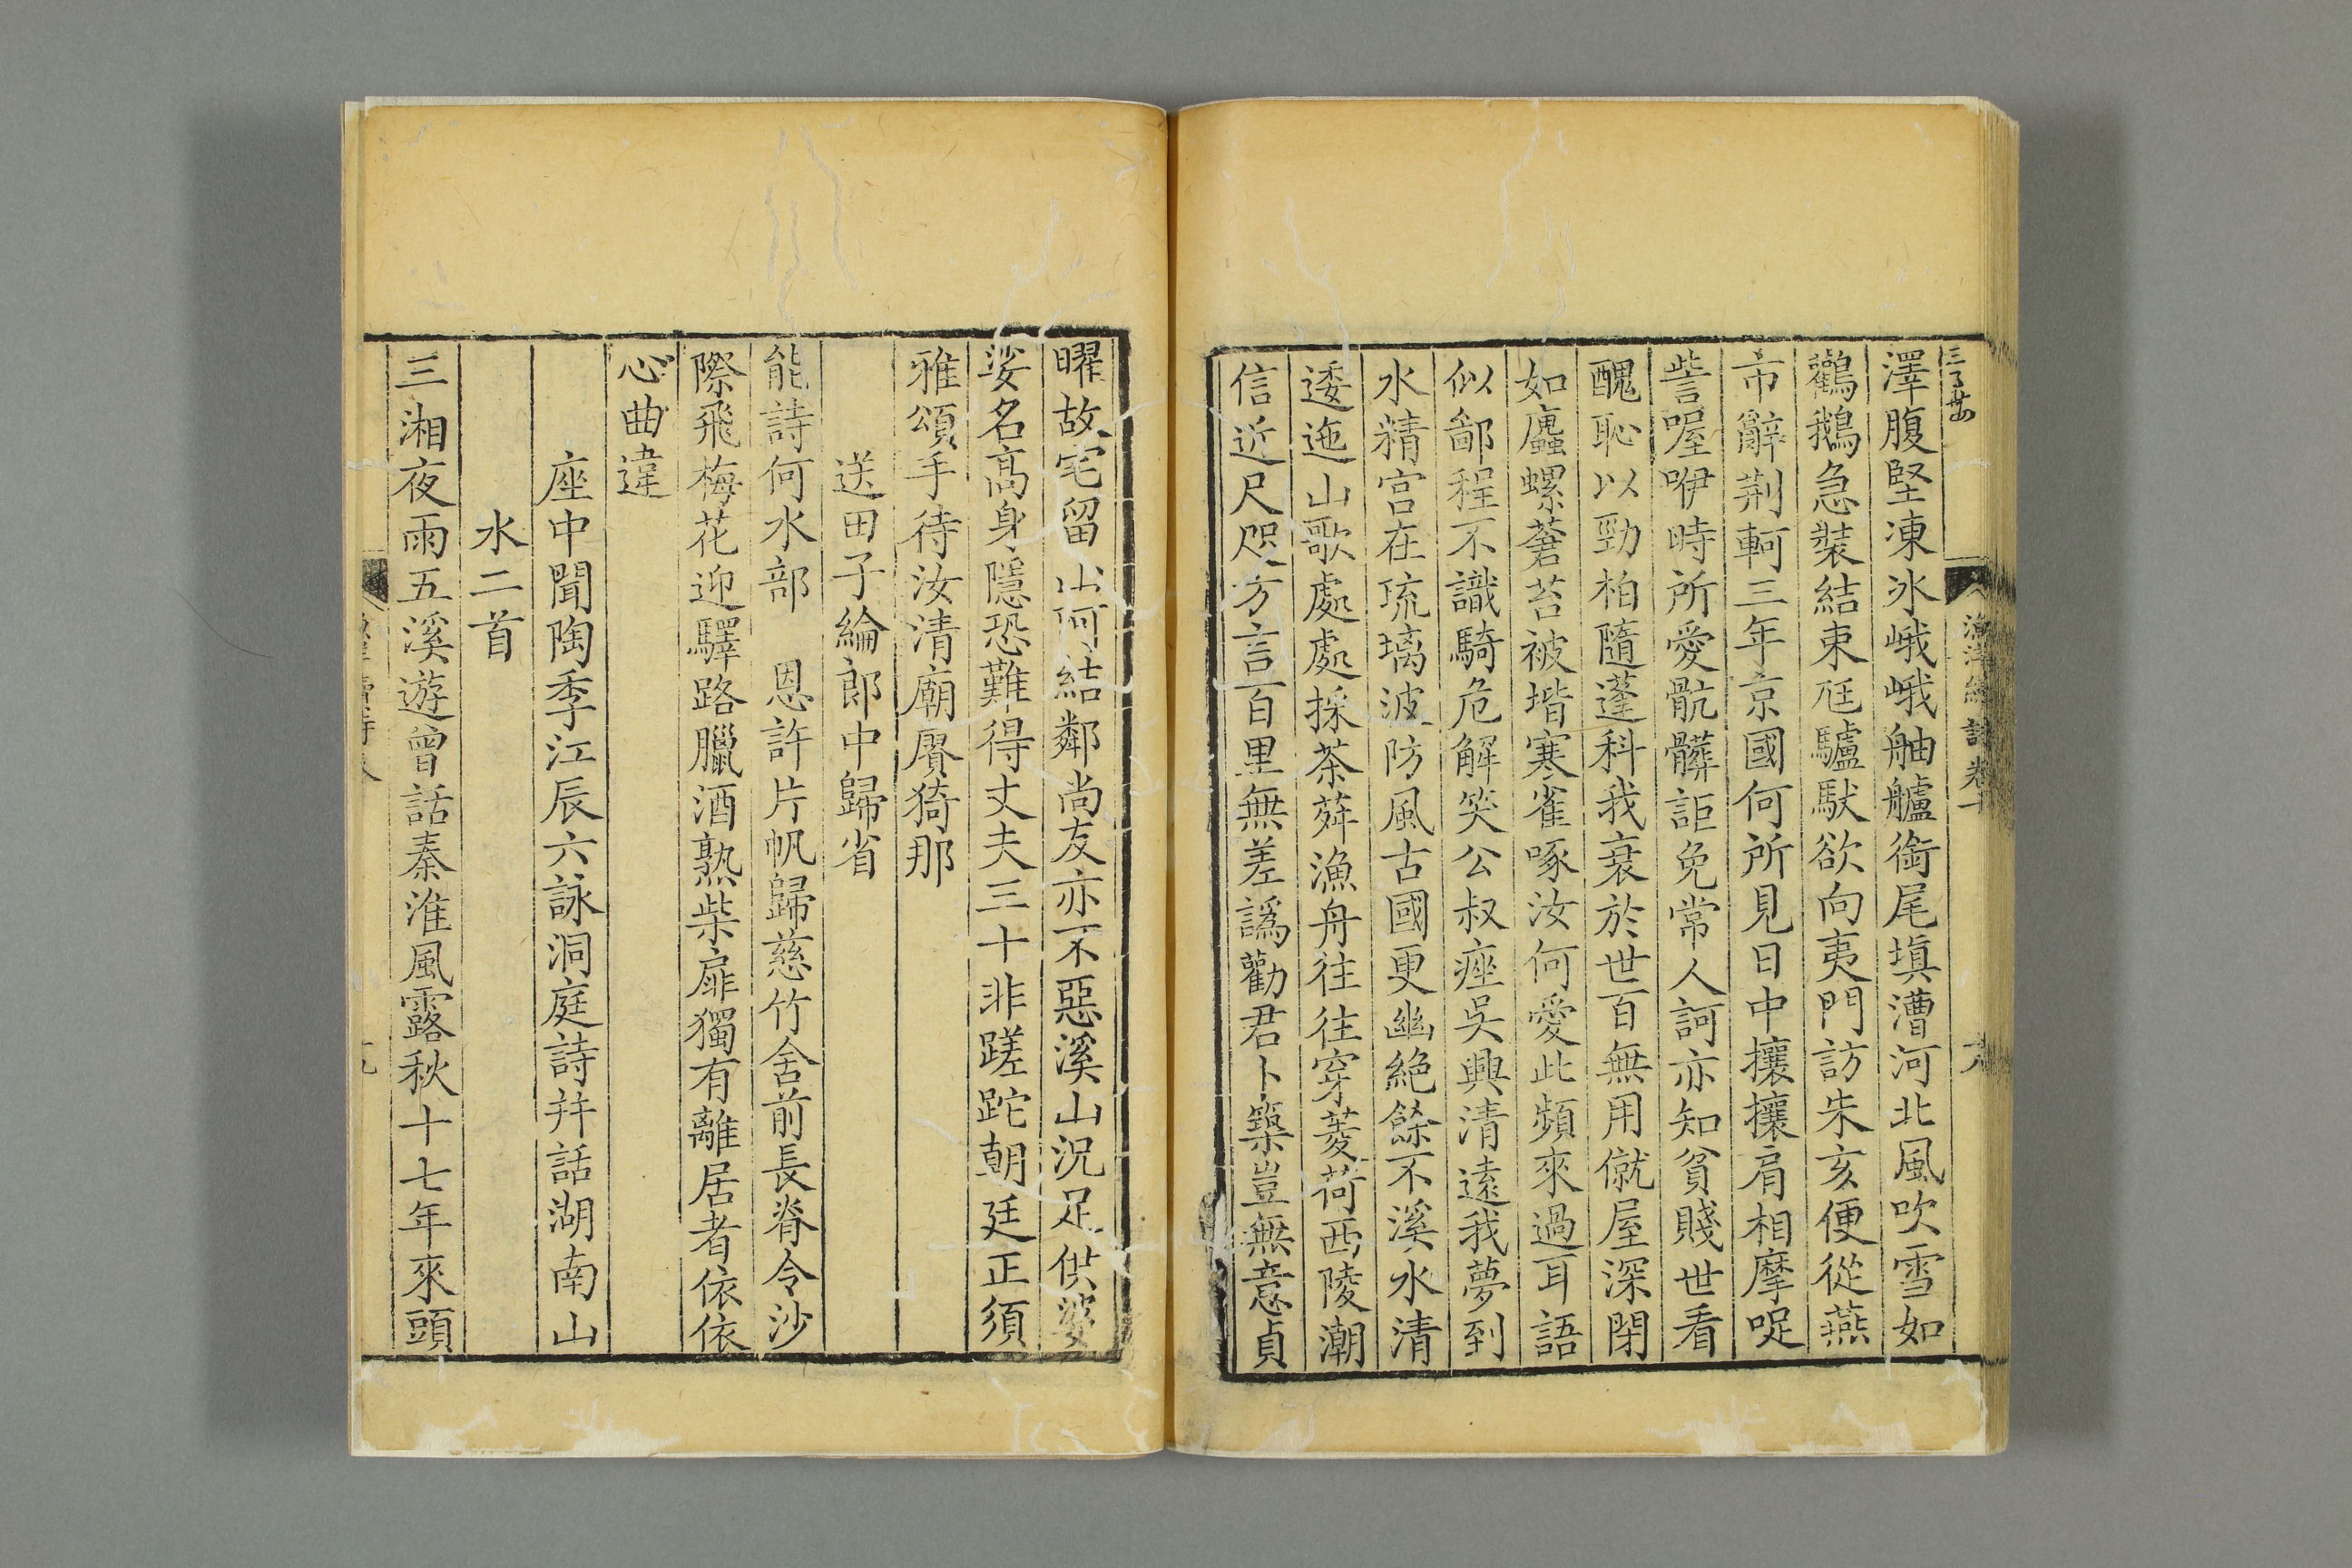 澤腹堅凍冰峨峨舳艫銜尾塡漕河北風吹雪如
鸛鵝急裝結束尫驢馱欲向夷門訪朱亥便從燕
市辭荆軻三年京國何所見日中攘攘肩相摩哫
訾喔咿時所愛骯髒詎免常人訶亦知貧賤世看
醜恥以勁柏隨蓬科我衰於世百無用僦屋深閉
如廬螺蒼苔被堦寒雀啄汝何愛此頻來過耳語
似鄙程不識騎危解笑公叔痤吳興清遠我夢到
水精宮在琉璃波防風古國更幽絶餘不溪水清
逶迤山歌處處採茶荈漁舟往往穿菱荷西陵潮
信近尺咫方言百里無差譌勸君卜築豈無意貞
曜故宅留山阿結鄰尚友亦不惡溪山況足供婆
娑名高身隱恐難得丈夫三十非蹉跎朝廷正須
雅頌手待汝清廟賡猗那
送田子綸郎中歸省
能詩何水部　恩許片帆歸慈竹舍前長脊令沙
際飛梅花迎驛路臘酒熟柴扉獨有離居者依依
心曲違
座中聞陶季江辰六詠洞庭詩幷話湖南山
水二首
三湘夜雨五溪遊曾話秦淮風露秋十七年來頭